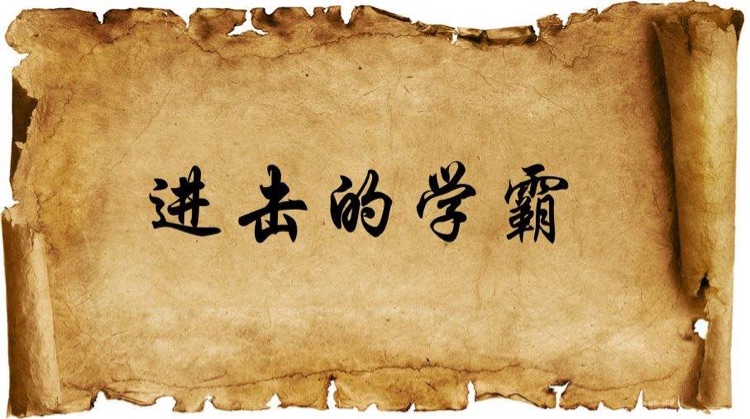 进击的学霸